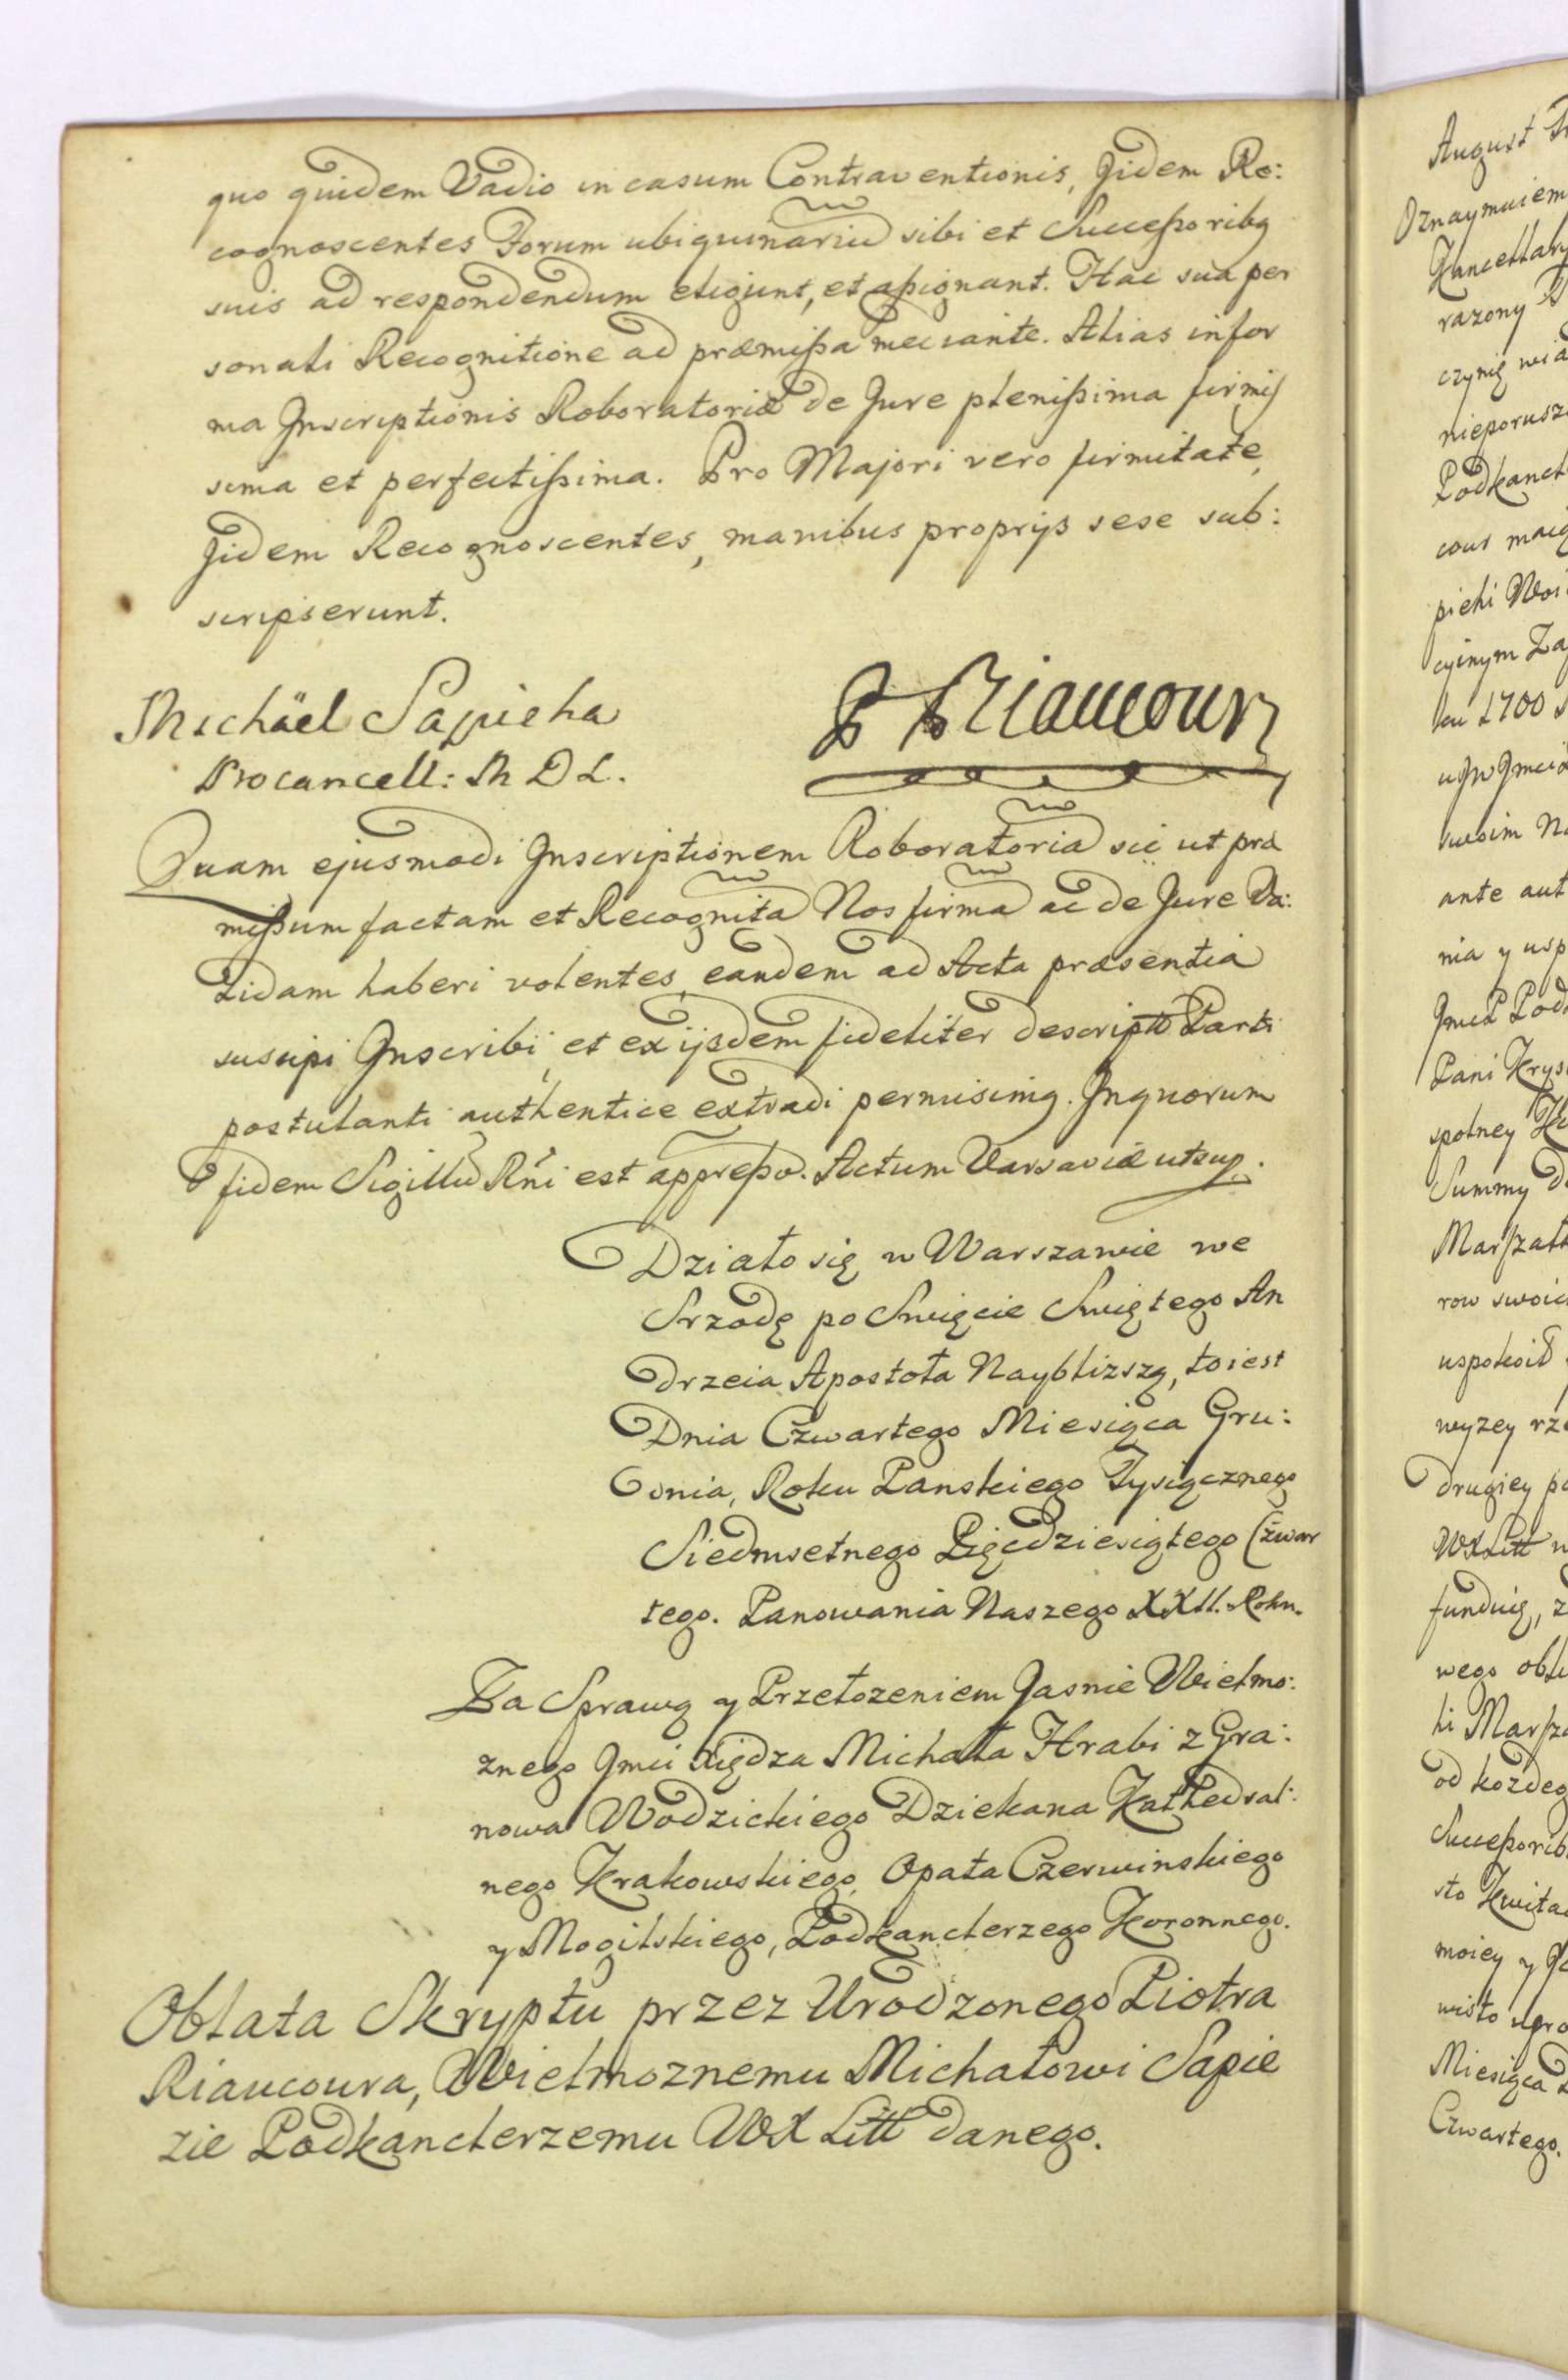 quo quidem Vadio in casum Contraventionis, Jidem Re:
cognoscentes Forum ubiquinariu sibi et Succeßoribq
suis ad respondendum eligunt, et aßignant. Hac sua per
sonali Recognitione ad præmißa mediante. Alias in for
ma Inscriptionis Roboratoriæ de Jure plenißima firmiß
sima et perfectißima. Pro Majori vero firmitate,
Jidem Recognoscentes, manibus proprijs sese sub:
scripserunt.
Michäel Sapieha
Procancell: M D L.
P Riaucour
Quam ejusmodi Inscriptionem Roboratoria sic ut præ
mißum factam et Recognita Nos firma ac de Jure Va:
lidam haberi volentes, eandem ad Acta præsentia
suscipi Inscribi, et ex ijsdem fideliter descripto Parti
postulanti authentice extradi permisimq. Inquorum
fidem Sigillu Rni est appreßo. Actum Varsaviæ utsup.
Działo się w Warszawie we
Srzodę po Swięcie Swiętego An
drzeia Apostoła Naybliższą, to iest
Dnia Czwartego Miesiąca Gru:
dnia, Roku Panskiego Tysiącznego
Siedmsetnego Pięcdziesiątego Czwar
tego. Panowania Naszego XXII. Roku.
Za Sprawą y Przełozeniem Jasnie Wielmo:
znego Jmci Xiędza Michała Hrabi z Gra:
nowa Wodzickiego Dziekana Kathedral:
nego Krakowskiego, Opata Czerwinskiego
y Mogilskiego, Podkanclerzego Koronnego.
Oblata Skryptu przez Urodzonego Piotra
Riaucoura, Wielmoznemu Michałowi Sapie
zie Podkanclerzemu WX Litt danego.
August
Oznaymuiem
Kancellary
razony
czynię
nieporusz
Podkancl
cour maią
piehi Woi
cyinym Za
ku 1700
swoim
ante aut
nia y usp
Pani Krys
spolney
Summy
Marßałk
row swoic
uspokoił
wyzey rze
drugiey po
WXLitt
funduię,
wego obli
ki Marßa
od kozdeg
Succeßorib
sto Kwita
moiey y
Miesiąca
Czwartego.